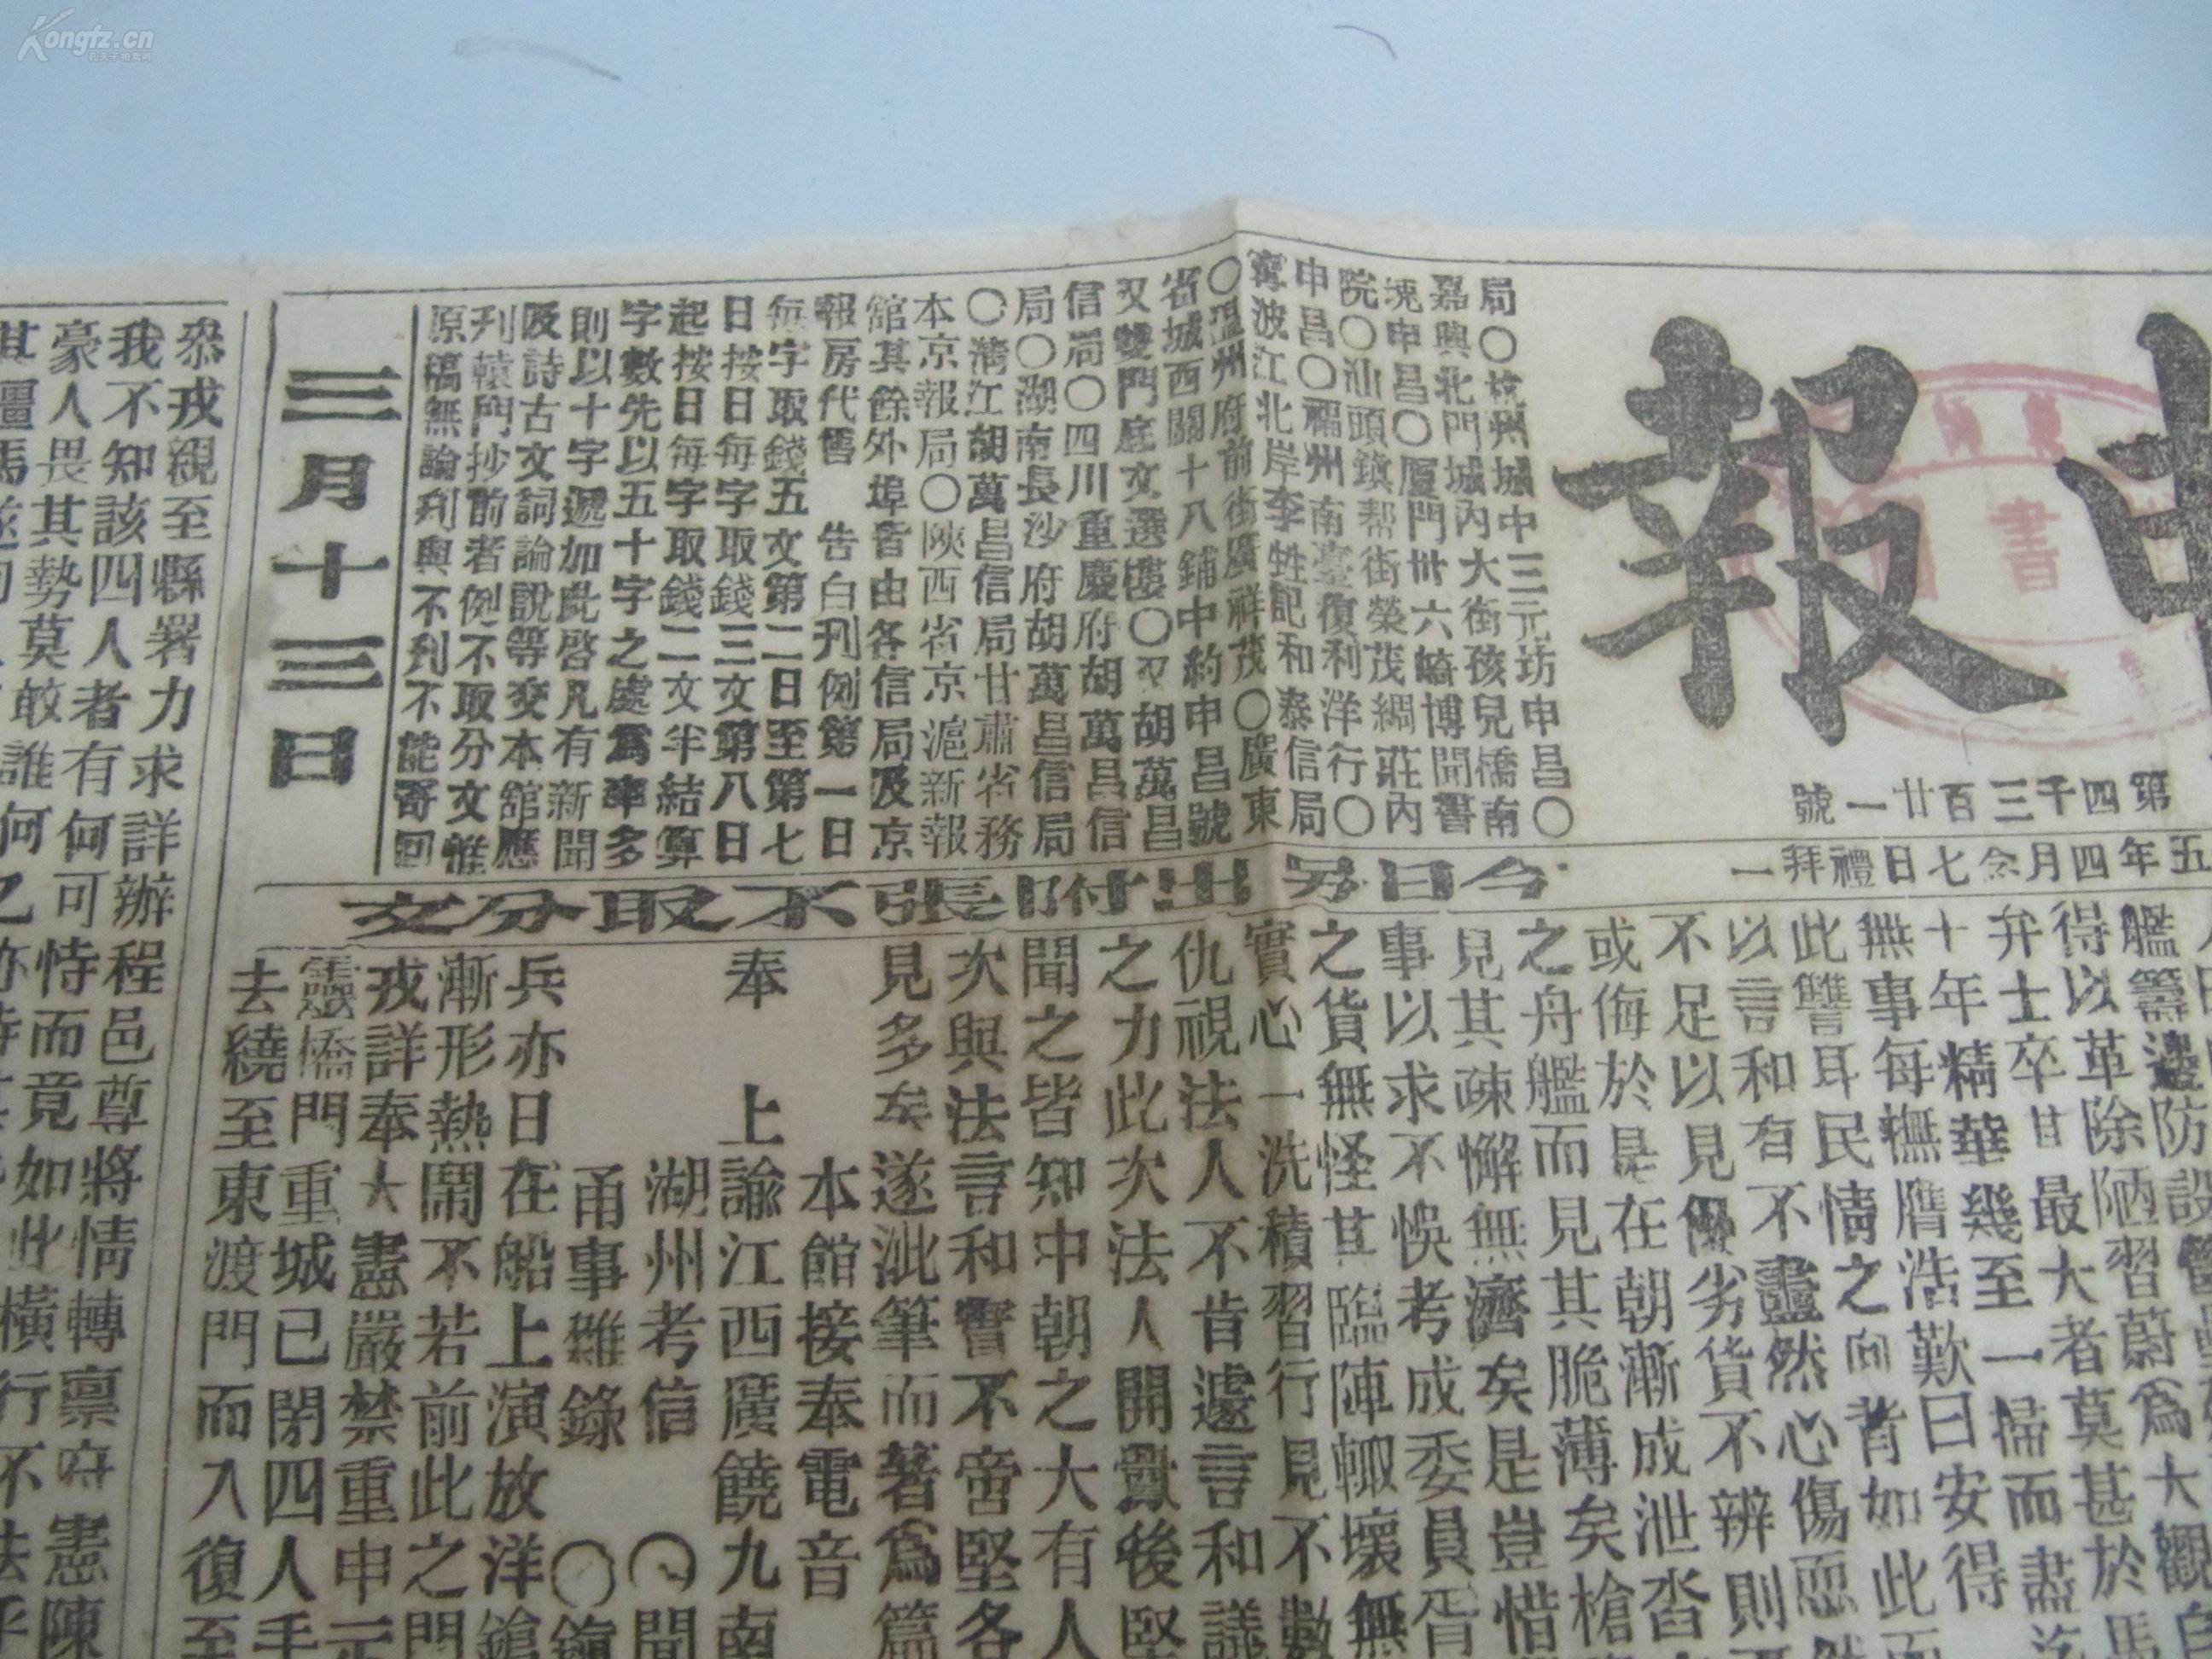 申報
第四千三百廿一號
五年四月念七日禮拜一
局〇杭州城中三元坊申昌〇
嘉興北門城內大街孩兒橋南
堍申昌〇廈門卅六崎博聞書
院〇汕頭鎮帮街榮茂綢莊內
申昌〇福州南臺復利洋行〇
寗波江北岸李牲記和泰信局
〇溫州府前街廣祥茂〇廣東
省城西關十八鋪中約申昌號
又雙門底文選樓〇又胡萬昌
信局〇四川重慶府胡萬昌信
局〇湖南長沙府胡萬昌信局
〇清江胡萬昌信局甘肅省務
本京報局〇陝西省京滬新報
舘其餘外埠皆由各信局及京
報房代售 告白刋例第一日
每字取錢五文第二日至第七
日按日每字取錢三文第八日
起按日每字取錢二文半結算
字數先以五十字之處爲率多
則以十字遞加此啓凡有新聞
及詩古文詞論說等交本舘應
刋轅門抄前者例不取分文惟
原稿無論刋與不刋不能寄回
三月十三日
今日另出附張不取分文
艦籌邊防設
得以革除陋習蔚爲大觀
弁士卒甘最大者莫甚於馬
十年精華幾至一掃而盡
無事每撫膺浩歎曰安得
此讐耳民情之向背如此而
以言和有不盡然心傷
不足以見優劣貨不辨則
或侮於是在朝漸成泄沓
之舟艦而見其脆薄矣槍
見其疎懈無濟矣是豈惜
事以求不悞考成委員胥
之貨無怪其臨陣輙壞無
實心一洗積習行見不數
仇視法人不肯遽言和議
之力此次法人開釁後堅
聞之皆知中朝之大有人
次與法言和實不啻堅各
見多矣遂泚筆而著爲篇
本館接奉電音
奉 上諭江西廣饒九南
湖州考信 〇聞
甬事雜錄 〇鎭
兵亦日在船上演放洋鎗
漸形熱鬧不若前此之門
戎詳奉大憲嚴禁重申元
靈橋門重城已閉四人手
去繞至東渡門而入復至
叅戎親至縣署力求詳辦程邑尊將情轉禀府憲陳
我不知該四人者有何可恃而竟如此橫行不法乎
豪人畏其勢莫敢誰何
Kongfz.cn
書